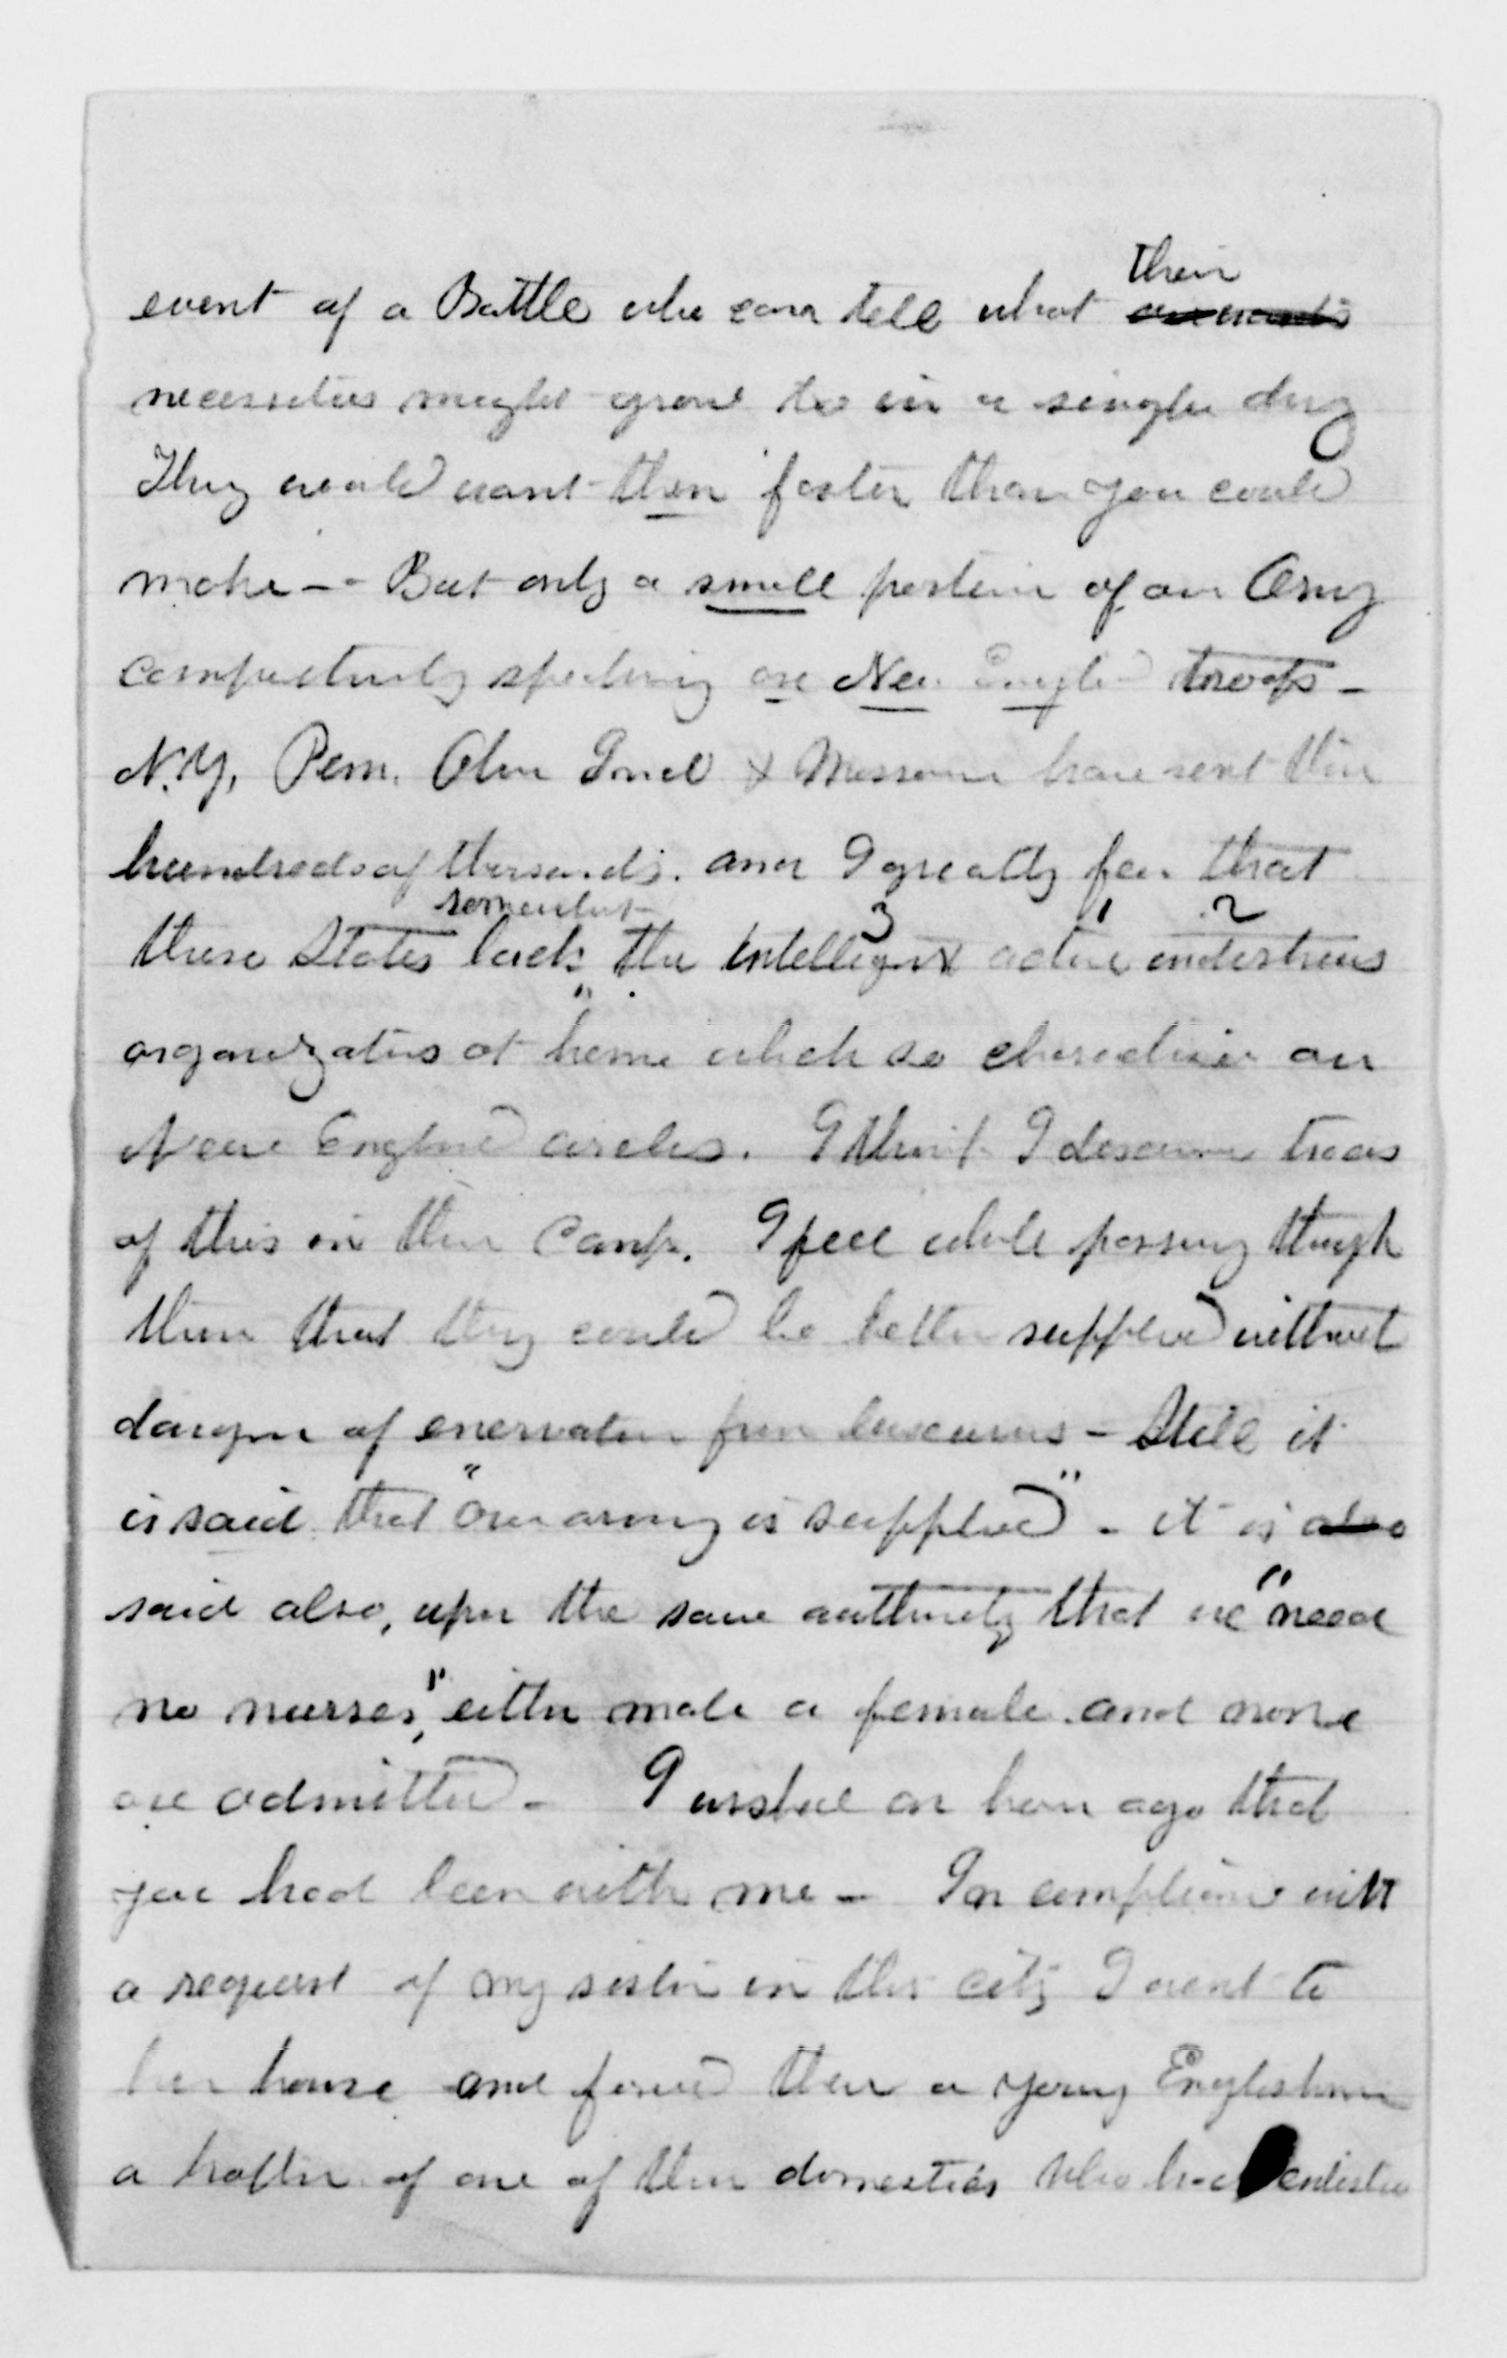 their
event of a Battle who can tell what
necessities might grow to in a single day
They would want then faster than you could
make — But only a small portion of our Army
comparatively speaking are New England troops —
N.Y, Penn. Ohio Ind & Missouri have sent their
hundreds of thousands. and I greatly fear that
somewhat 3 1 2
those States lack the intelligent active industrious
organizations at home which so characterize our
New England circles. I think I discern traces
of this in their Camps. I feel while passing through
them that they could be better supplied without
danger of enervation from luxuries — Still it
is said that "our army is supplied" - it is also
said also, upon the same authority that we "need
no nurses", either male or female and none
are admitted - I wished an hour ago that
you had been with me — In compliance with
a request of my sister in this city I went to
her house and found there a young Englishman
a brother of one of their domestics who had enlisted